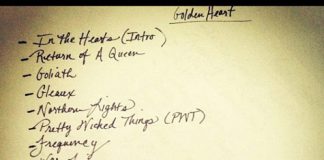 Golden Heart
- In The Hearts (Intro)
- Return of A Queen
- Goliath
- Gleaux
- Northern Lights
- Pretty Wicked Things (PWT)
- Frequency